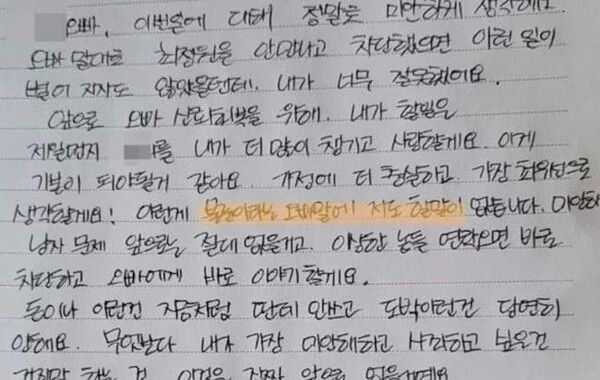 오빠. 이번일에 대해 정말로 미안하게 생각해요.
오빠 말대로 최정원을 안만나고 차단했으면 이런 일이
벌어 지지도 않았을텐데. 내가 너무 잘못했어요.
앞으로 오빠 신뢰회복을 위해. 내가 할일은
제일먼저 를 내가 더 많이 챙기고 사랑할게요. 이게
기본이 되야할거 같아요. 가정에 더 충실하고. 가장 최우선으로
생각할게요! 이렇게 오빠말에 저도 할말이 없습니다. 미안해
남자 문제 앞으로는 절대 없을거고. 이상한 놈들 연락오면 바로
차단하고 오빠에게 바로 이야기할게요.
돈이나 이런건 지금처럼 딴데 안쓰고 도박이런건 당연히
안해요. 무엇보다 내가 가장 미안해하고 사과하고 싶은건
거짓말 이것은 진짜 앞으로